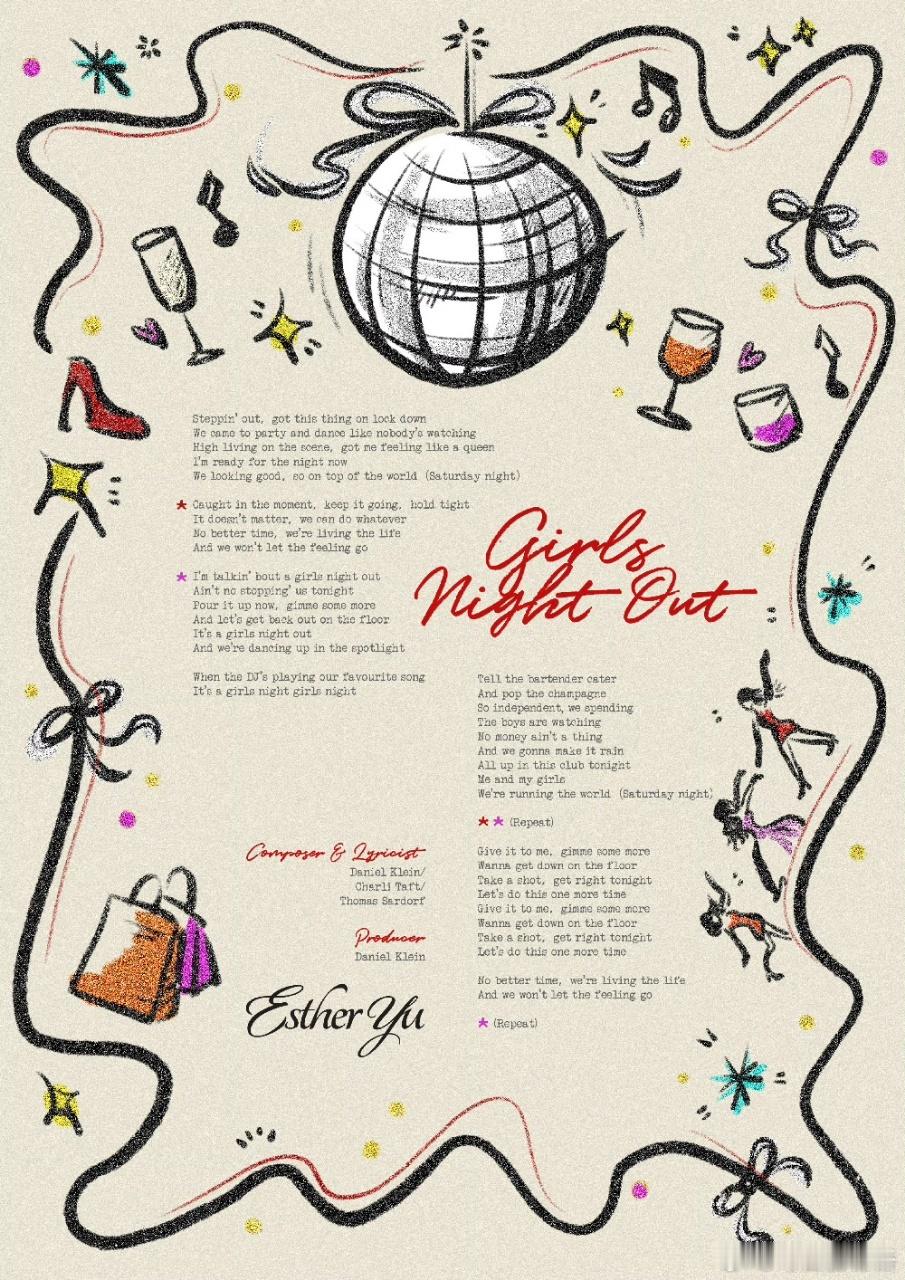 Steppin' out, got this thing on lock down
We came to party and dance like nobody's watching
High living on the scene, got me feeling like a queen
I'm ready for the night now
We looking good, so on top of the world (Saturday night)
* Caught in the moment, keep it going, hold tight
It doesn't matter, we can do whatever
No better time, we're living the life
And we won't let the feeling go
* I'm talkin' bout a girls night out
Ain't no stopping' us tonight
Pour it up now, gimme some more
And let's get back out on the floor
It's a girls night out
And we're dancing up in the spotlight
When the DJ's playing our favourite song
It's a girls night girls night
Girls
Night Out
Tell the bartender cater
And pop the champagne
So independent, we spending
The boys are watching
No money ain't a thing
And we gonna make it rain
All up in this club tonight
Me and my girls
We're running the world (Saturday night)
* * (Repeat)
Give it to me, gimme some more
Wanna get down on the floor
Take a shot, get right tonight
Let's do this one more time
Give it to me, gimme some more
Wanna get down on the floor
Take a shot, get right tonight
Let's do this one more time
No better time, we're living the life
And we won't let the feeling go
* (Repeat)
Composer & Lyricist
Daniel Klein/
Charli Taft/
Thomas Sardorf
Producer
Daniel Klein
Esther Yu